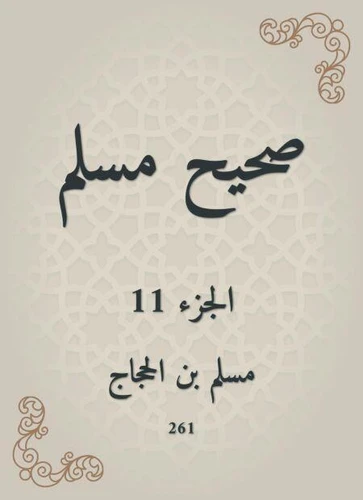 صحيح مسلم
الجزء 11
مسلم بن الحجاج
261